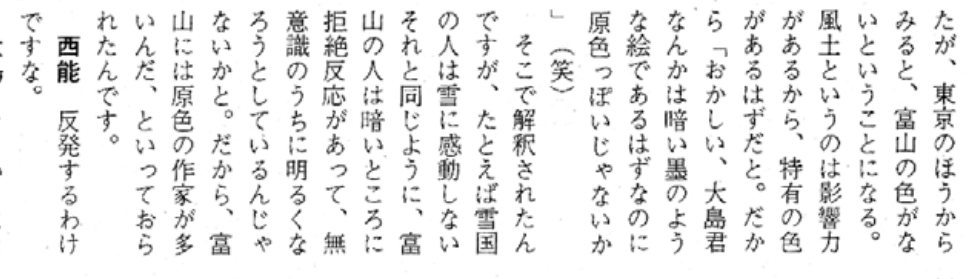 たが、東京のほうから
みると、富山の色がな
いということになる。
風土というのは影響力
があるから、特有の色
があるはずだと。だか
ら「おかしい、大島君
なんかは暗い墨のよう
な絵であるはずなのに
原色っぽいじゃないか
」（笑）
　そこで解釈されたん
ですが、たとえば雪国
の人は雪に感動しない
それと同じように、富
山の人は暗いところに
拒絶反応があって、無
意識のうちに明るくな
ろうとしているんじゃ
ないかと。だから、富
山には原色の作家が多
いんだ、といっておら
れたんです。
　西能　反発するわけ
ですな。